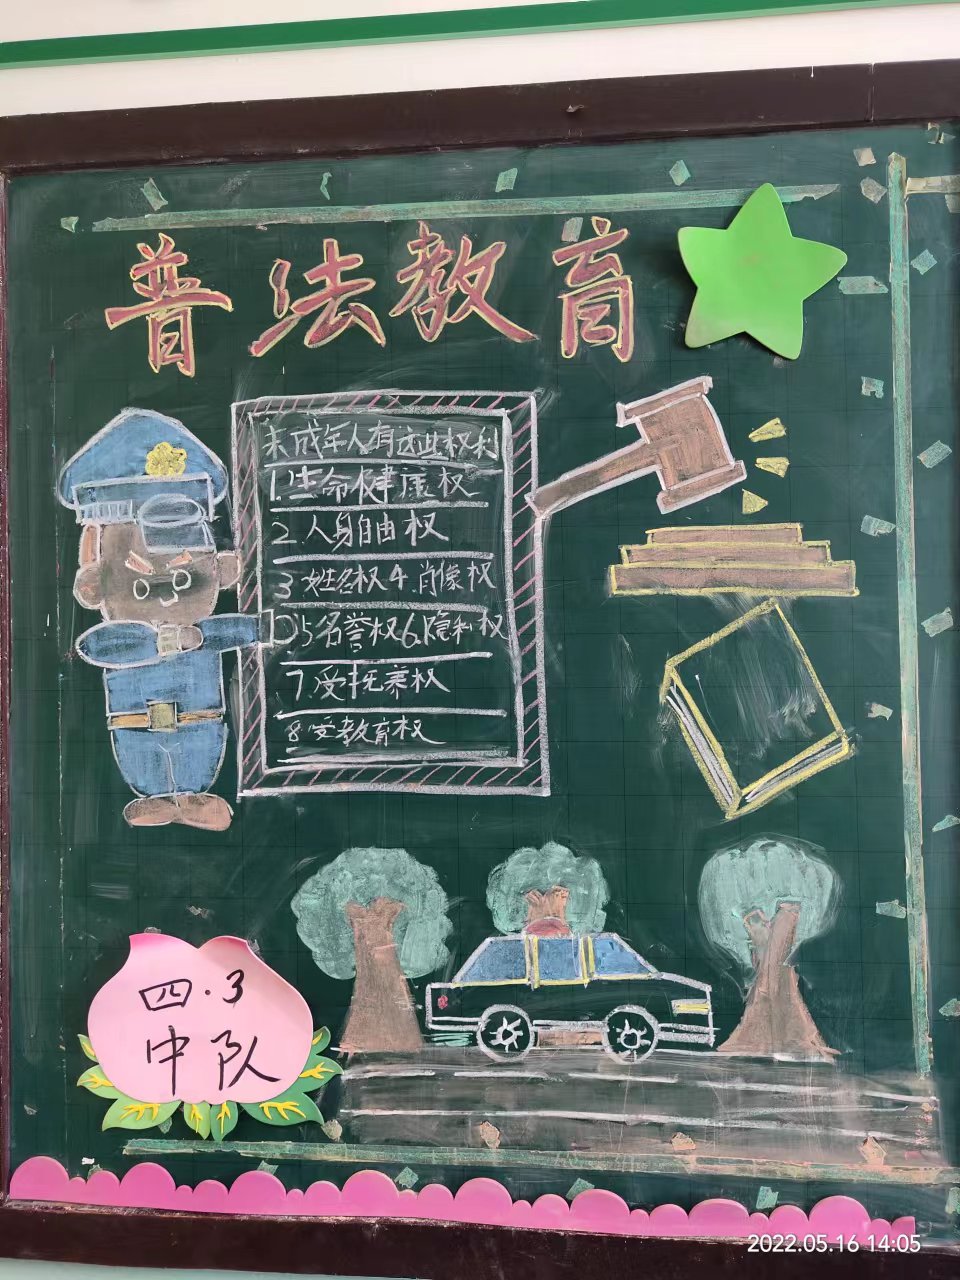 普法教育
未成年人有这些权利
1.生命健康权
2.人身自由权
3.姓名权4.肖像权
5名誉权6.隐私权
7.受抚养权
8受教育权
四.3
中队
2022.05.16 14:05